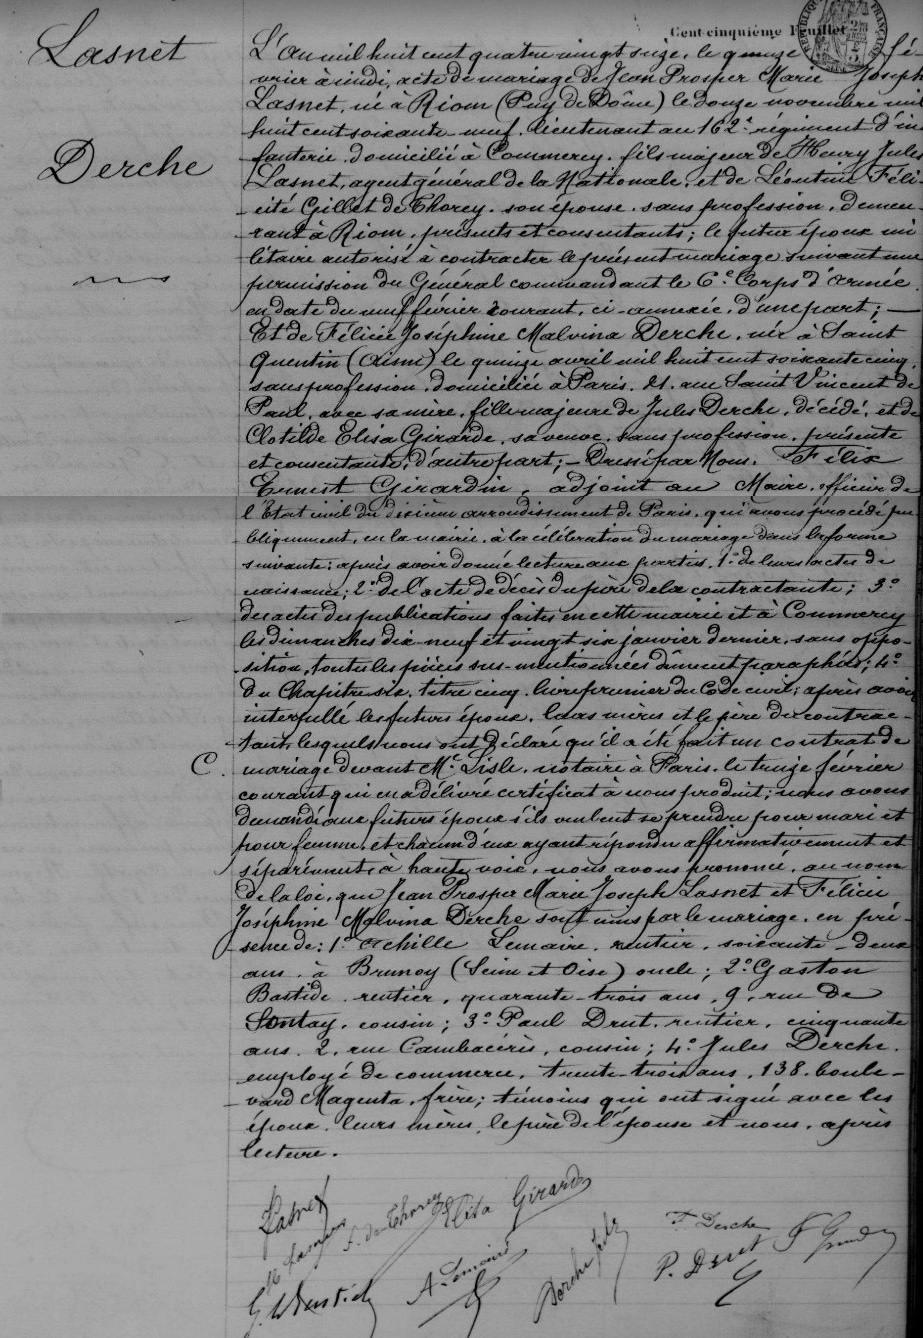 Cent cinquième Feuillet
Lasnet
Derche
L'an mil huit cent quatre vingt seize, le quinze fé-
vrier à midi, acte de mariage de Jean Prosper Marie Joseph
Lasnet, né à Riom (Puy de Dôme) le douze novembre mil
huit cent soixante neuf, lieutenant au 162e régiment d'in
fanterie, domicilié à Commercy, fils majeur de Henry Jules
Lasnet, agent général de la Nationale, et de Léontine Féli-
cité Gillet de Thorey, son épouse, sans profession, demeu-
rant à Riom, présents et consentants; le futur époux mi
litaire autorisé à contracter le présent mariage suivant une
permission du Général commandant le 6e Corps d'armée
en date du neuf février courant, ci-annexée, d'une part; —
Et de Félicie Joséphine Malvina Derche, née à Saint
Quentin (Aisne) le quinze avril mil huit cent soixante cinq,
sans profession, domiciliée à Paris, 21, rue Saint Vincent de
Paul, avec sa mère, fille majeure de Jules Derche, décédé, et de
Clotilde Elisa Girarde, sa veuve, sans profession, présente
et consentante, d'autre part; – Dressé par Nous, Félix
Ernest Girardin, adjoint au Maire, officier de
l'Etat civil du dixième arrondissement de Paris, qui avons procédé pu
bliquement, en la mairie, à la célébration du mariage dans la forme
suivante: après avoir donné lecture aux parties, 1° de leurs actes de
naissance; 2° de l'acte de décès du père de la contractante; 3°
des actes des publications faites en cette mairie et à Commercy
les dimanches dix-neuf et vingt six janvier dernier, sans oppo-
sition, toutes les pièces sus-mentionnées dûment paraphées; 4°
du Chapitre six, titre cinq, livre premier du Code civil; après avoir
interpellé les futurs époux, leurs mères et le père du contrac-
tant, lesquels nous ont déclaré qu'il a été fait un contrat de
C. mariage devant Me Lisle, notaire à Paris, le treize février
courant qui en a délivré certificat à nous produit; nous avons
demandé aux futurs époux s'ils veulent se prendre pour mari et
pour femme, et chacun d'eux ayant répondu affirmativement et
séparément, à haute voix, nous avons prononcé, au nom
de la loi, que Jean Prosper Marie Joseph Lasnet et Félicie
Joséphine Malvina Derche sont unis par le mariage, en pré-
sence de: 1° Achille Lemaire, rentier, soixante-deux
ans, à Brunoy (Seine et Oise) oncle; 2° Gaston
Bastide, rentier, quarante-trois ans, 9, rue de
Sontay, cousin; 3° Paul Drut, rentier, cinquante
ans, 2, rue Cambacérès, cousin; 4° Jules Derche,
employé de commerce, trente-trois ans, 138, boule-
vard Magenta, frère; témoins qui ont signé avec les
époux, leurs mères, le père de l'épouse et nous, après
lecture.
Lasnet
F. de Thorey
Elisa Girarde
F. Derche
A. Lemaire
Derche Jules
P. Drut